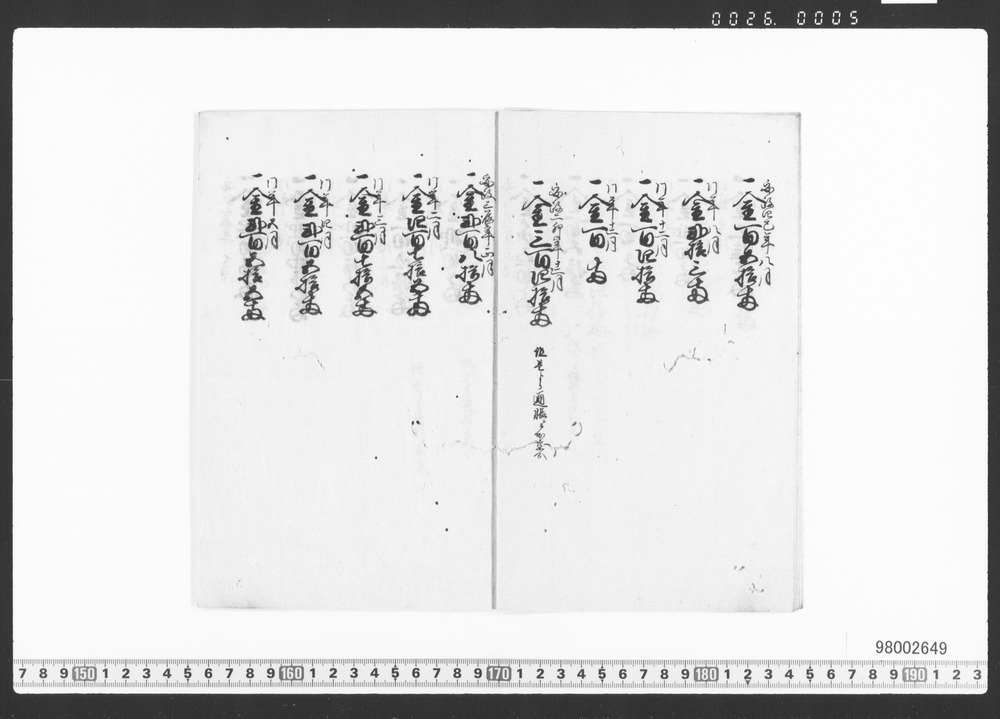 0026. 0005
巳年八月
一金百五拾両
同年八月
一金弐拾三両
同年十二月
一金百四拾両
同年十二月
一金百両
安政二卯年十二月
一金三百四拾両
但是より通帳
安政三辰年正月
一金弐百八拾両
同年二月
一金四百七拾五両
同年三月
一金弐百七拾五両
同年四月
一金弐百五拾両
同年五月
一金弐百五拾五両
98002649
7 8 9 150 1 2 3 4 5 6 7 8 9 160 1 2 3 4 5 6 7 8 9 170 1 2 3 4 5 6 7 8 9 180 1 2 3 4 5 6 7 8 9 190 1 2 3